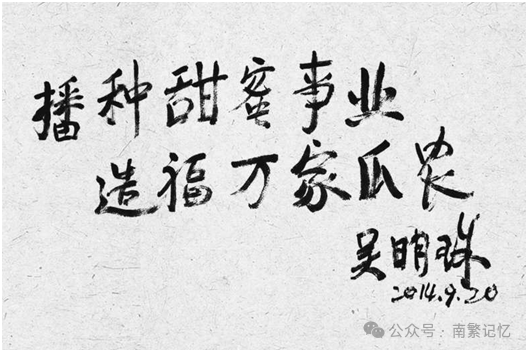 播种甜蜜事业
造福万家瓜农
吴明珠
2014.9.20
公众号·南繁记忆